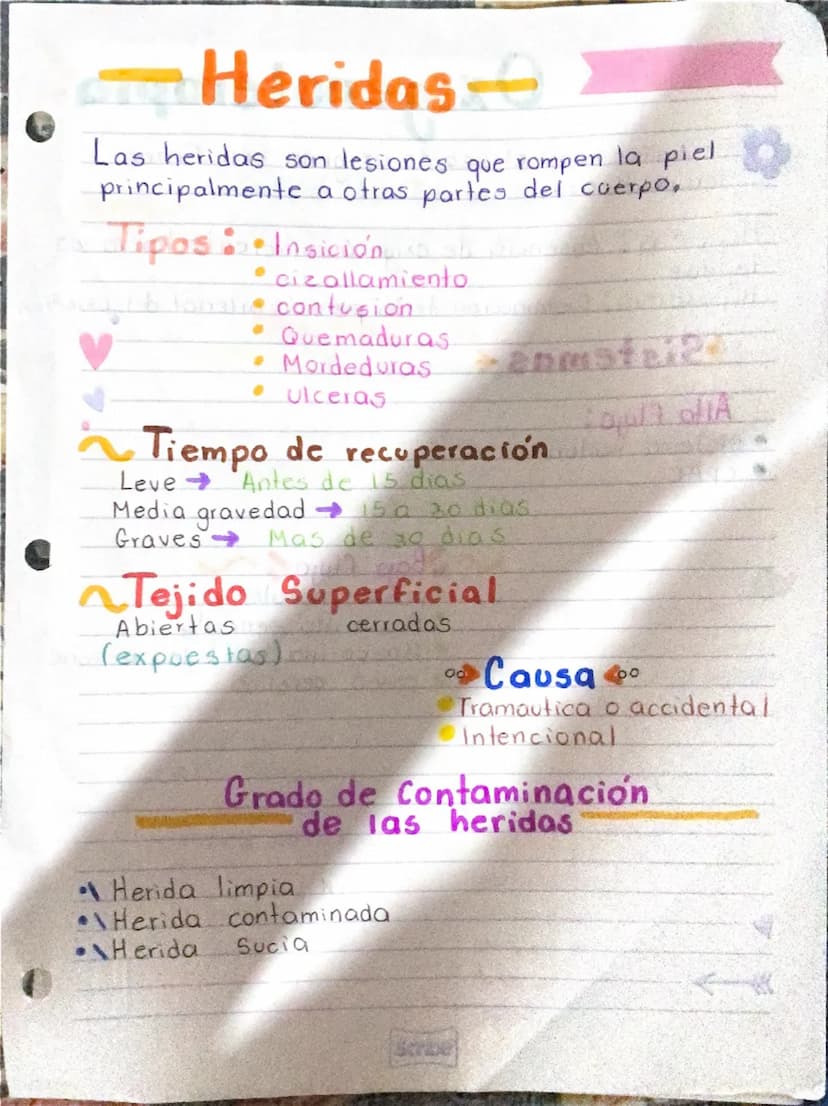 Heridas
Las heridas son lesiones que rompen la piel
principalmente a otras partes del cuerpo.
Tipos: • Insición
• cizallamiento
• contusión
• Quemaduras
• Mordeduras
• ulceras
Tiempo de recuperación
Leve → Antes de 15 dias
Media gravedad → 15 a 30 dias
Graves → Mas de 30 dias
Tejido Superficial
Abiertas cerradas
(expuestas)
Causa
• Tramautica o accidental
• Intencional
Grado de Contaminación
de las heridas
• Herida limpia
• Herida contaminada
• Herida Sucia
Scribe